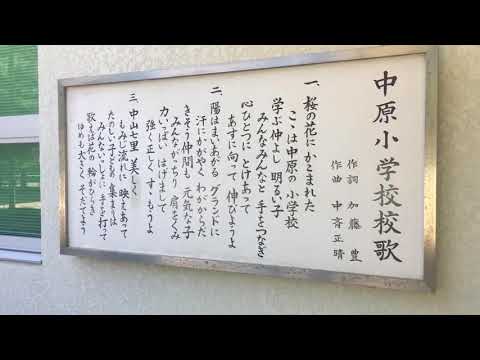 中原小学校校歌
作詞 加藤 豊
作曲 中斉正晴
一、桜の花にかこまれた
ここは中原の 小学校
学ぶ仲よし 明るい子
みんなみんなと 手をつなぎ
心ひとつに とけあって
あすに向って 伸びようよ
二、陽はまいあがる グランドに
汗にかがやく わがからだ
きそう仲間も 元気な子
みんながっちり 肩をくみ
力いっぱい はげまして
強く正しく すゝもうよ
三、中山七里 美しく
もみじ流れに 映えあって
たのしい子どもの 集まりは
みんないっしょに 手を打って
歌えば花の 輪がひらき
ゆめも大きく そだてよう